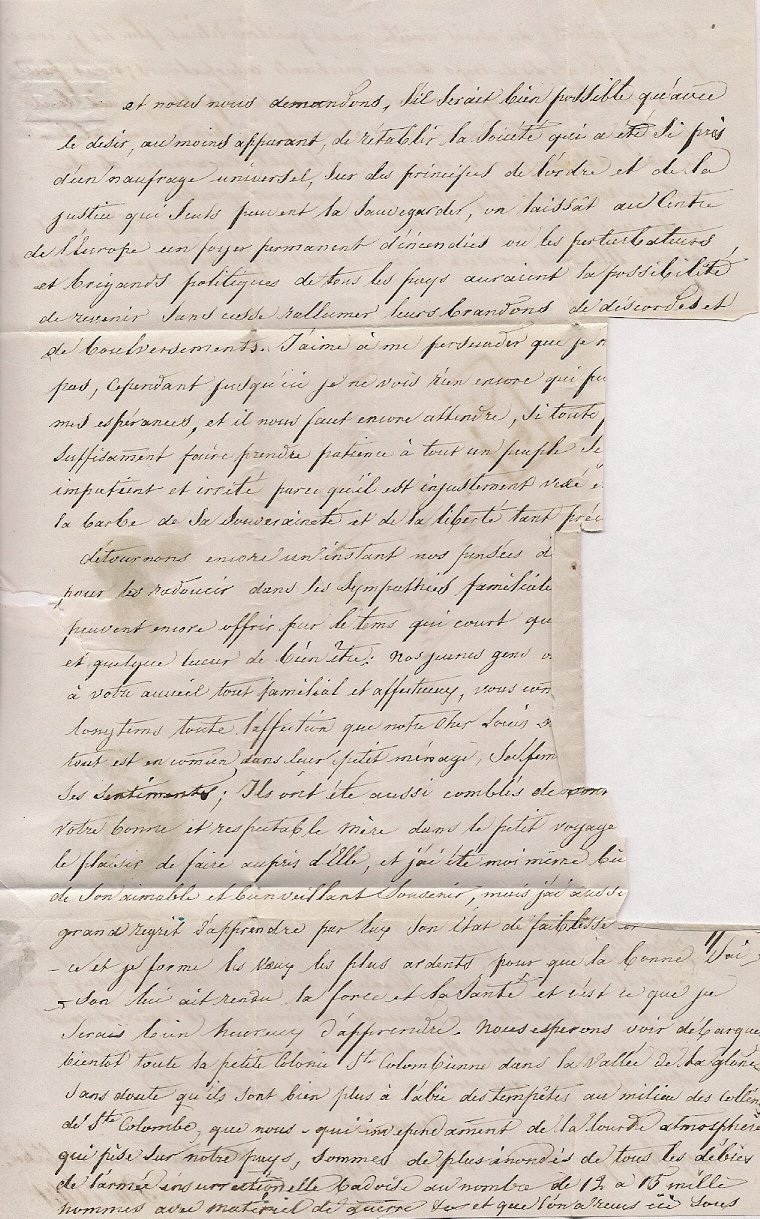 et nous nous demandons, s'il serait bien possible qu'avec
le desir, au moins apparant, de rétablir la société qui a été si près
d'un naufrage universel, sur des principes de l'ordre et de la
justice qui seuls peuvent la sauvegarder, on laissât au Centre
de l'Europe un foyer permanent d'incendies où les perturbateurs
et brigands politiques de tous les pays auraient la possibilité
de revenir sans cesse rallumer leurs brandons de discordes et
de boulversements. J'aime à me persuader que je n
pas, cependant jusqu'ici je ne vois rien encore qui pu
mes espérances, et il nous faut encore attendre, si toute
suffisament faire prendre patience à tout un peuple se
impatient et irrité parce qu'il est injustement vexé e
la barbe de sa souveraineté et de la liberté tant préc
détournons encore un instant nos pensées d
pour les radoucir dans les sympathies familiale
peuvent encore offrir par le tems qui court qu
et quelque lueur de bien être. Nos jeunes gens o
à votre accueil tout familial et affectueux, vous con
longtems toute l'affection que notre cher Louis
tout est en comun dans leur petit ménage, sa fem
ses sentiments; Ils ont été aussi comblés de
votre bonne et respectable mère dans le petit voyage
le plaisir de faire auprès d'Elle, et j'ai été moi même bi
de son aimable et bienveillant souvenir, mais j'ai aussi
grand regret d'apprendre par lux son état de faiblesse
- ce et je forme les vœux les plus ardents pour que la bonne Sai
- son lui ait rendu la force et la santé et c'est ce que je
serais bien heureux d'apprendre. Nous esperons voir débarquer
bientot toute la petite Colonie Ste Colombienne dans la vallée de la glane
sans doute qu'ils sont bien plus à l'abri des tempêtes au milieu des
de Ste Colombe, que nous - qui independament de la lourde atmosphère
qui pèse sur notre pays, sommes de plus inondés de tous les débris
de l'armée insurrectionelle badoise au nombre de 12 à 15 mille
hommes avec matériel de guerre et que l'on a reçus ici sous